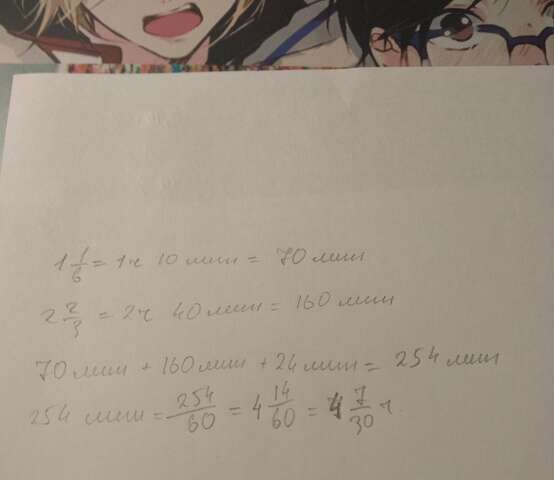 1 1/6 = 1ч 10 мин = 70 мин
2 2/3 = 2ч 40 мин = 160 мин
70 мин + 160 мин + 24 мин = 254 мин
254 мин = 254/60 = 4 14/60 = 4 7/30 ч.